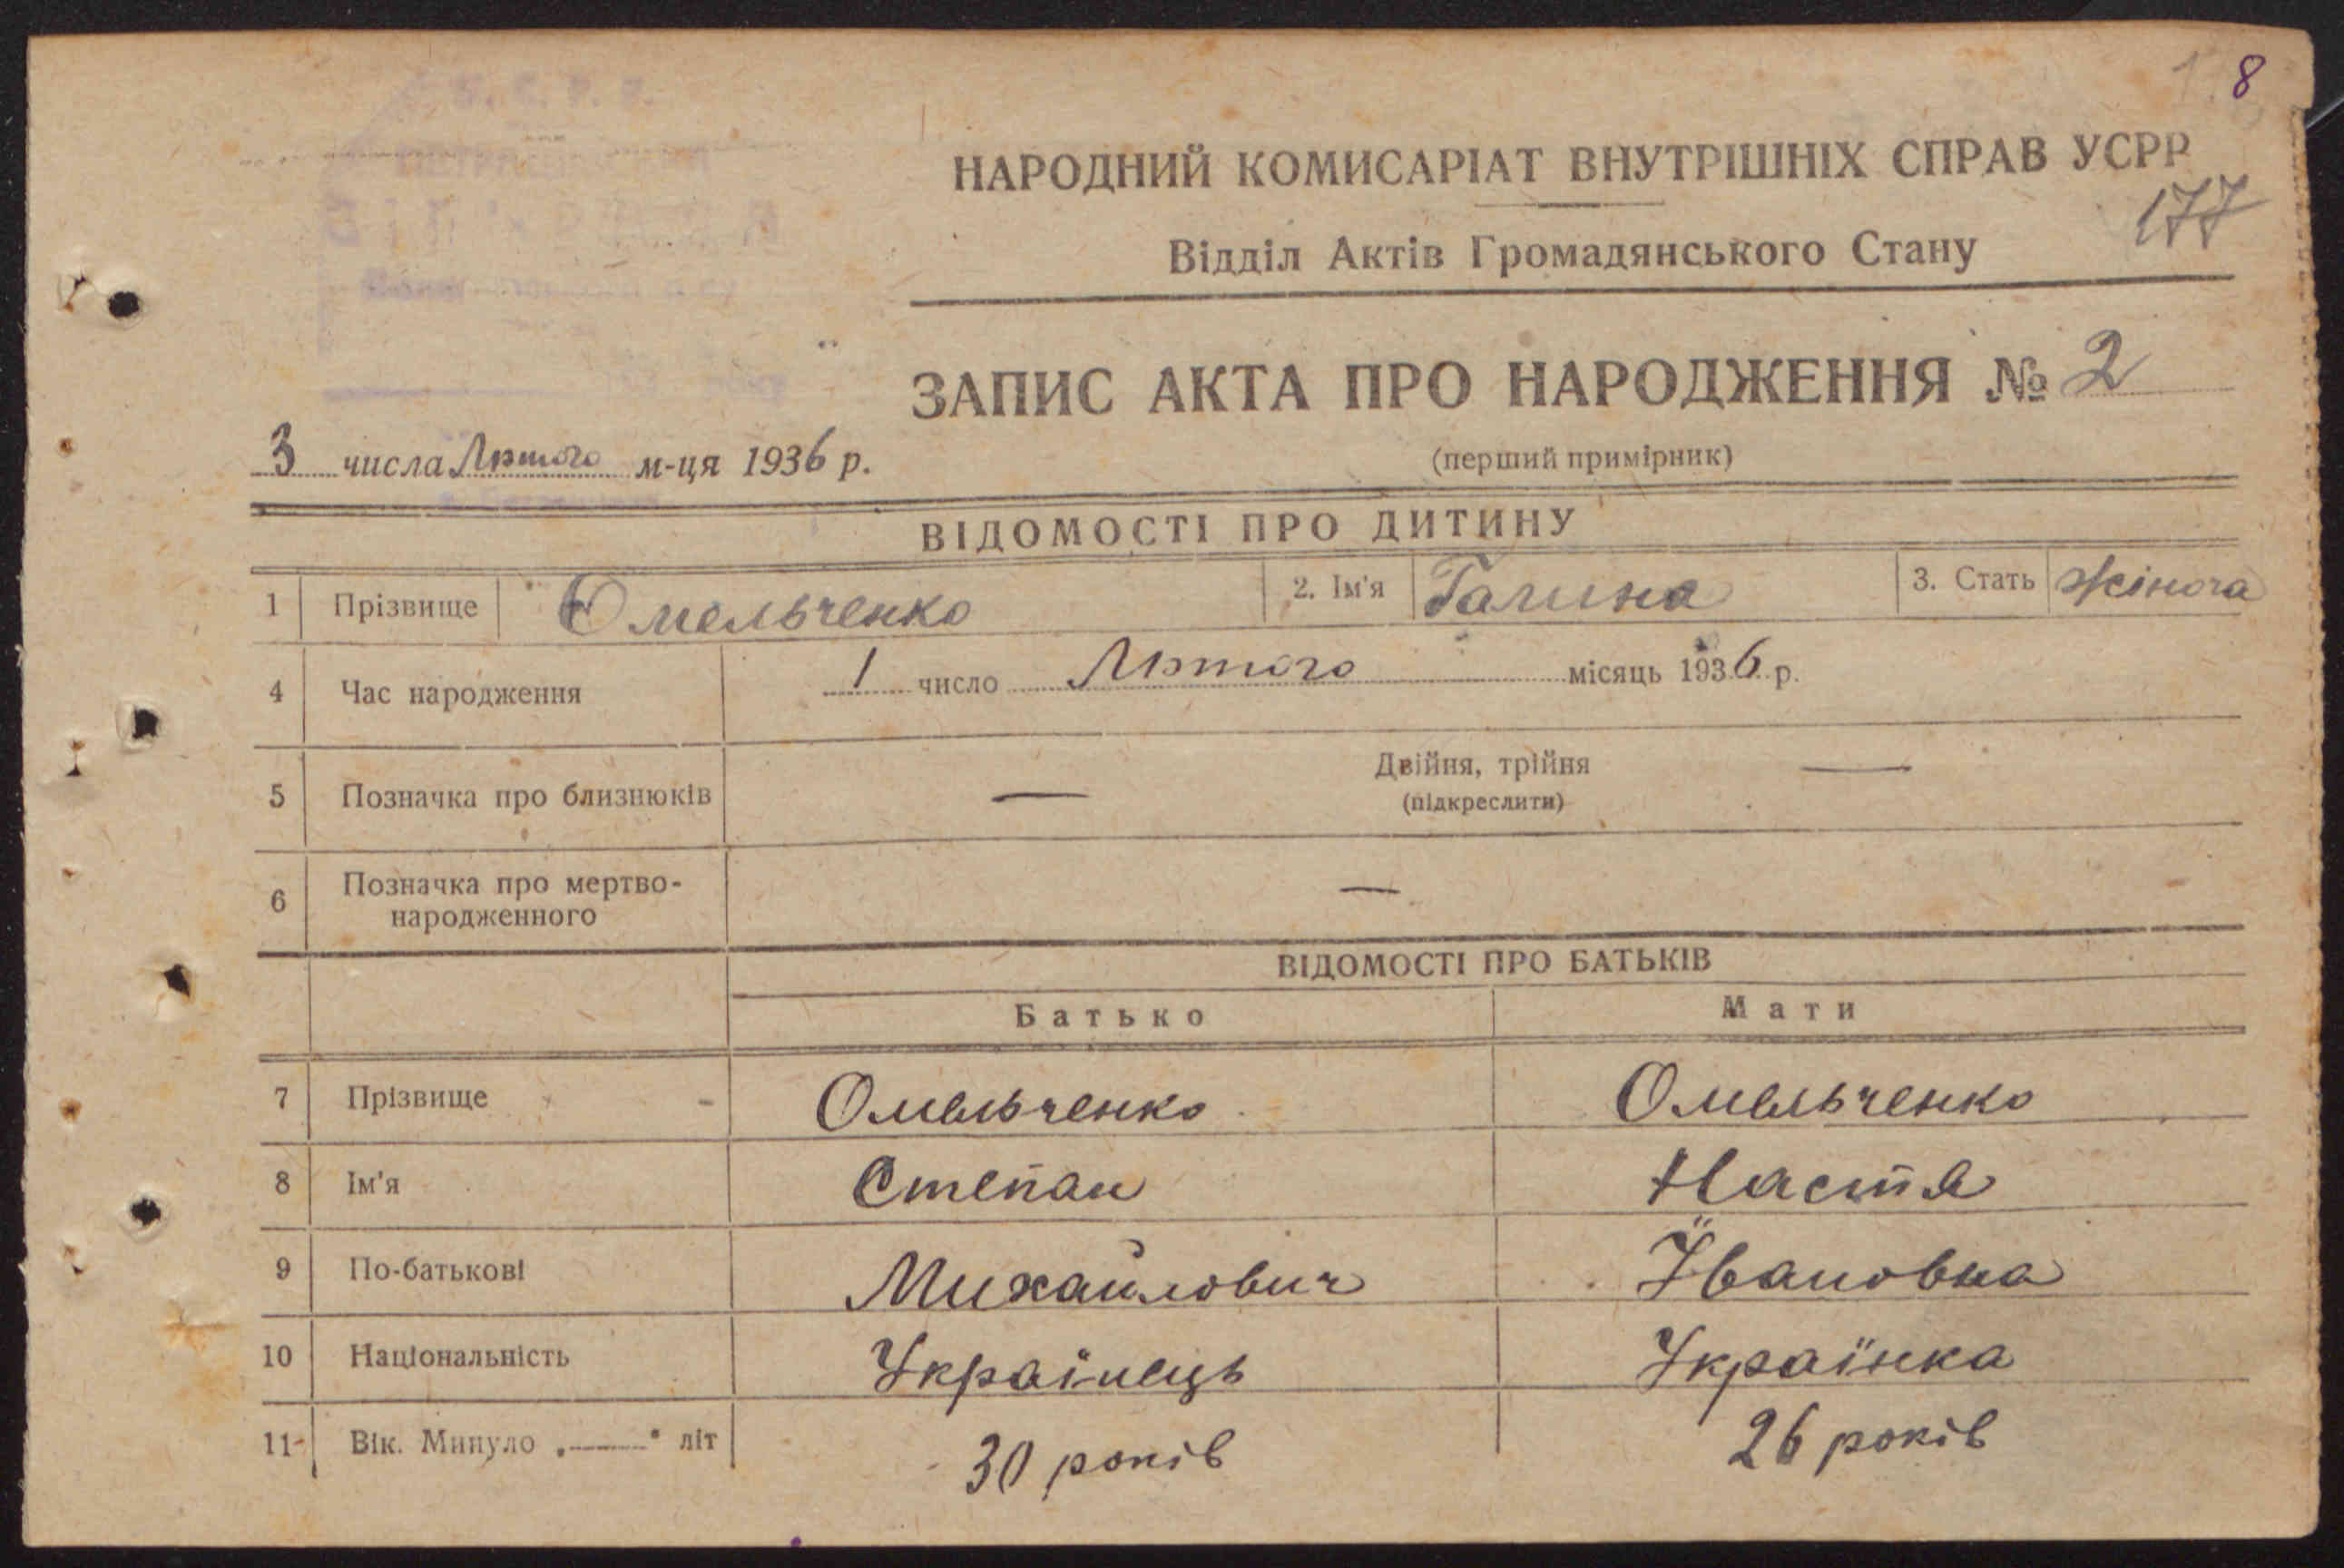 8
НАРОДНИЙ КОМИСАРІАТ ВНУТРІШНІХ СПРАВ УСРР
177
Відділ Актів Громадянського Стану
ЗАПИС АКТА ПРО НАРОДЖЕННЯ № 2
3 числа Лютого м-ця 1936 р.
(перший примірник)
ВІДОМОСТІ ПРО ДИТИНУ
1 Прізвище Омельченко 2. Ім'я Галина 3. Стать жіноча
4 Час народження 1 число Лютого місяць 1936 р.
5 Позначка про близнюків — Двійня, трійня —
(підкреслити)
6 Позначка про мертво-
народженного —
ВІДОМОСТІ ПРО БАТЬКІВ
Батько Мати
7 Прізвище Омельченко Омельченко
8 Ім'я Степан Настя
9 По-батькові Михайлович Івановна
10 Національність Українець Українка
11 Вік. Минуло „——" літ 30 років 26 років